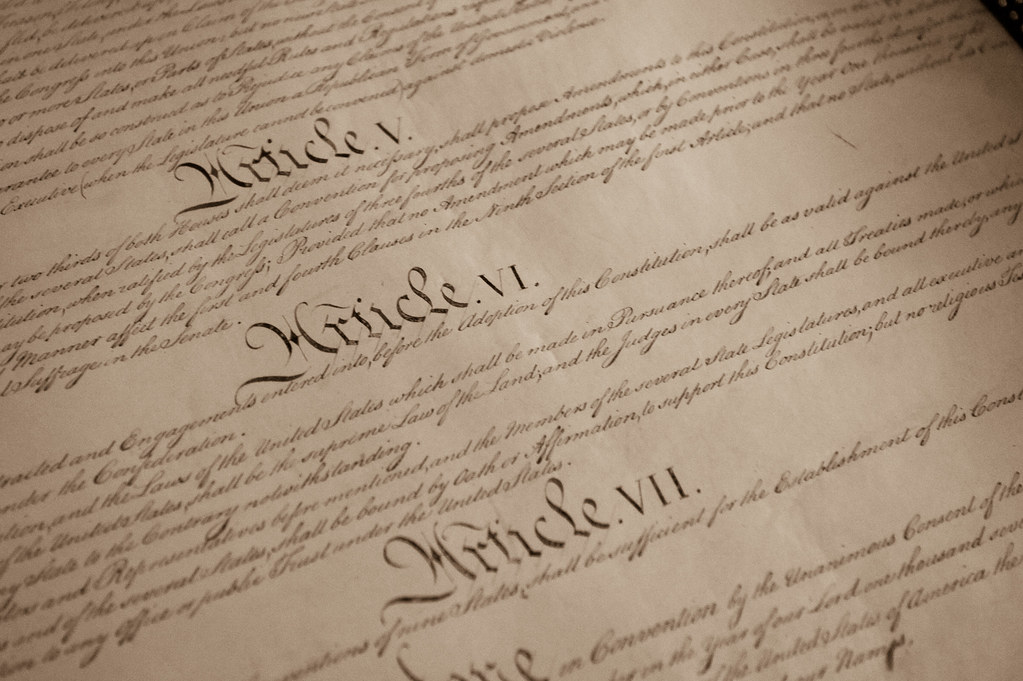 be demanded upon Claim of the
be Congress into this Union; but
or more States, or Parts of States, without the Consent of
dispose of and make all needful Rules and Regulations
shall be so construed as to Prejudice any Claims of the United
guarantee to every State in this Union a Republican Form of Government
Executive (when the Legislature cannot be convened) against domestic Violence.
Article. V.
two thirds of both Houses shall deem it necessary, shall propose Amendments to this Constitution, or, on the
the several States, shall call a Convention for proposing Amendments, which, in either Case, shall be
when ratified by the Legislatures of three fourths of the several States, or by Conventions in three fourths
be proposed by the Congress; Provided that no Amendment which may be made prior to the Year One thousand
Manner affect the first and fourth Clauses in the Ninth Section of the first Article; and that no State, without
Suffrage in the Senate.
Article. VI.
and Engagements entered into, before the Adoption of this Constitution, shall be as valid against the United
under the Confederation.
and the Laws of the United States which shall be made in Pursuance thereof; and all Treaties made, or which
of the United States, shall be the supreme Law of the Land; and the Judges in every State shall be bound thereby, any
State to the Contrary notwithstanding.
and Representatives before mentioned, and the Members of the several State Legislatures, and all executive
and of the several States, shall be bound by Oath or Affirmation, to support this Constitution; but no religious
to any Office or public Trust under the United States.
Article. VII.
of nine States, shall be sufficient for the Establishment of this
Done in Convention by the Unanimous Consent of the
in the Year of our Lord one thousand
of the United States of America the
our Names,